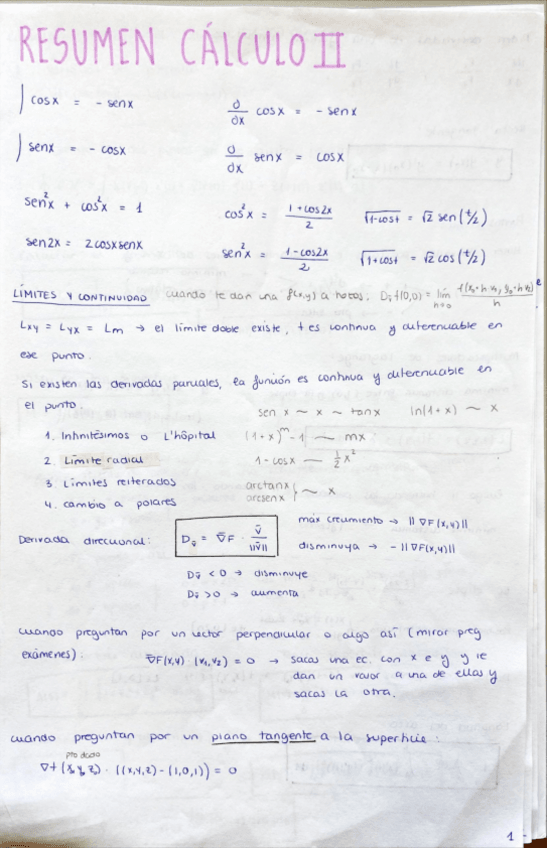 RESUMEN CÁLCULO II
∫ cosx = - senx d/dx cosx = - senx
∫ senx = - cosx d/dx senx = cosx
sen²x + cos²x = 1 cos²x = (1+cos2x)/2 √(1-cost) = √2 sen(t/2)
sen2x = 2cosxsenx sen²x = (1-cos2x)/2 √(1+cost) = √2 cos(t/2)
LÍMITES Y CONTINUIDAD cuando te dan una f(x,y) a trozos:
Lxy = Lyx = Lm → el límite doble existe, f es continua y diferenciable en
ese punto.
Si existen las derivadas parciales, la función es continua y diferenciable en
el punto. sen x ~ x ~ tanx ln(1+x) ~ x
1. Infinitésimos o L'hôpital (1+x)^m - 1 ~ mx
2. Límite radial 1 - cosx ~ 1/2 x²
3. Límites reiterados arctanx
4. cambio a polares arcsenx } ~ x
Derivada direccional: Dv̄ = ∇F · v̄/||v̄|| máx crecimiento → ||∇F(x,y)||
disminuya → - ||∇F(x,y)||
Dv̄ < 0 → disminuye
Dv̄ > 0 → aumenta
cuando preguntan por un vector perpendicular o algo así (mirar preg
exámenes): ∇F(x,y) · (v₁,v₂) = 0 → sacas una ec. con x e y y te
dan un valor a una de ellas y
sacas la otra.
cuando preguntan por un plano tangente a la superficie:
pto dado
∇f (x,y,z) · ((x,y,z) - (1,0,1)) = 0
1